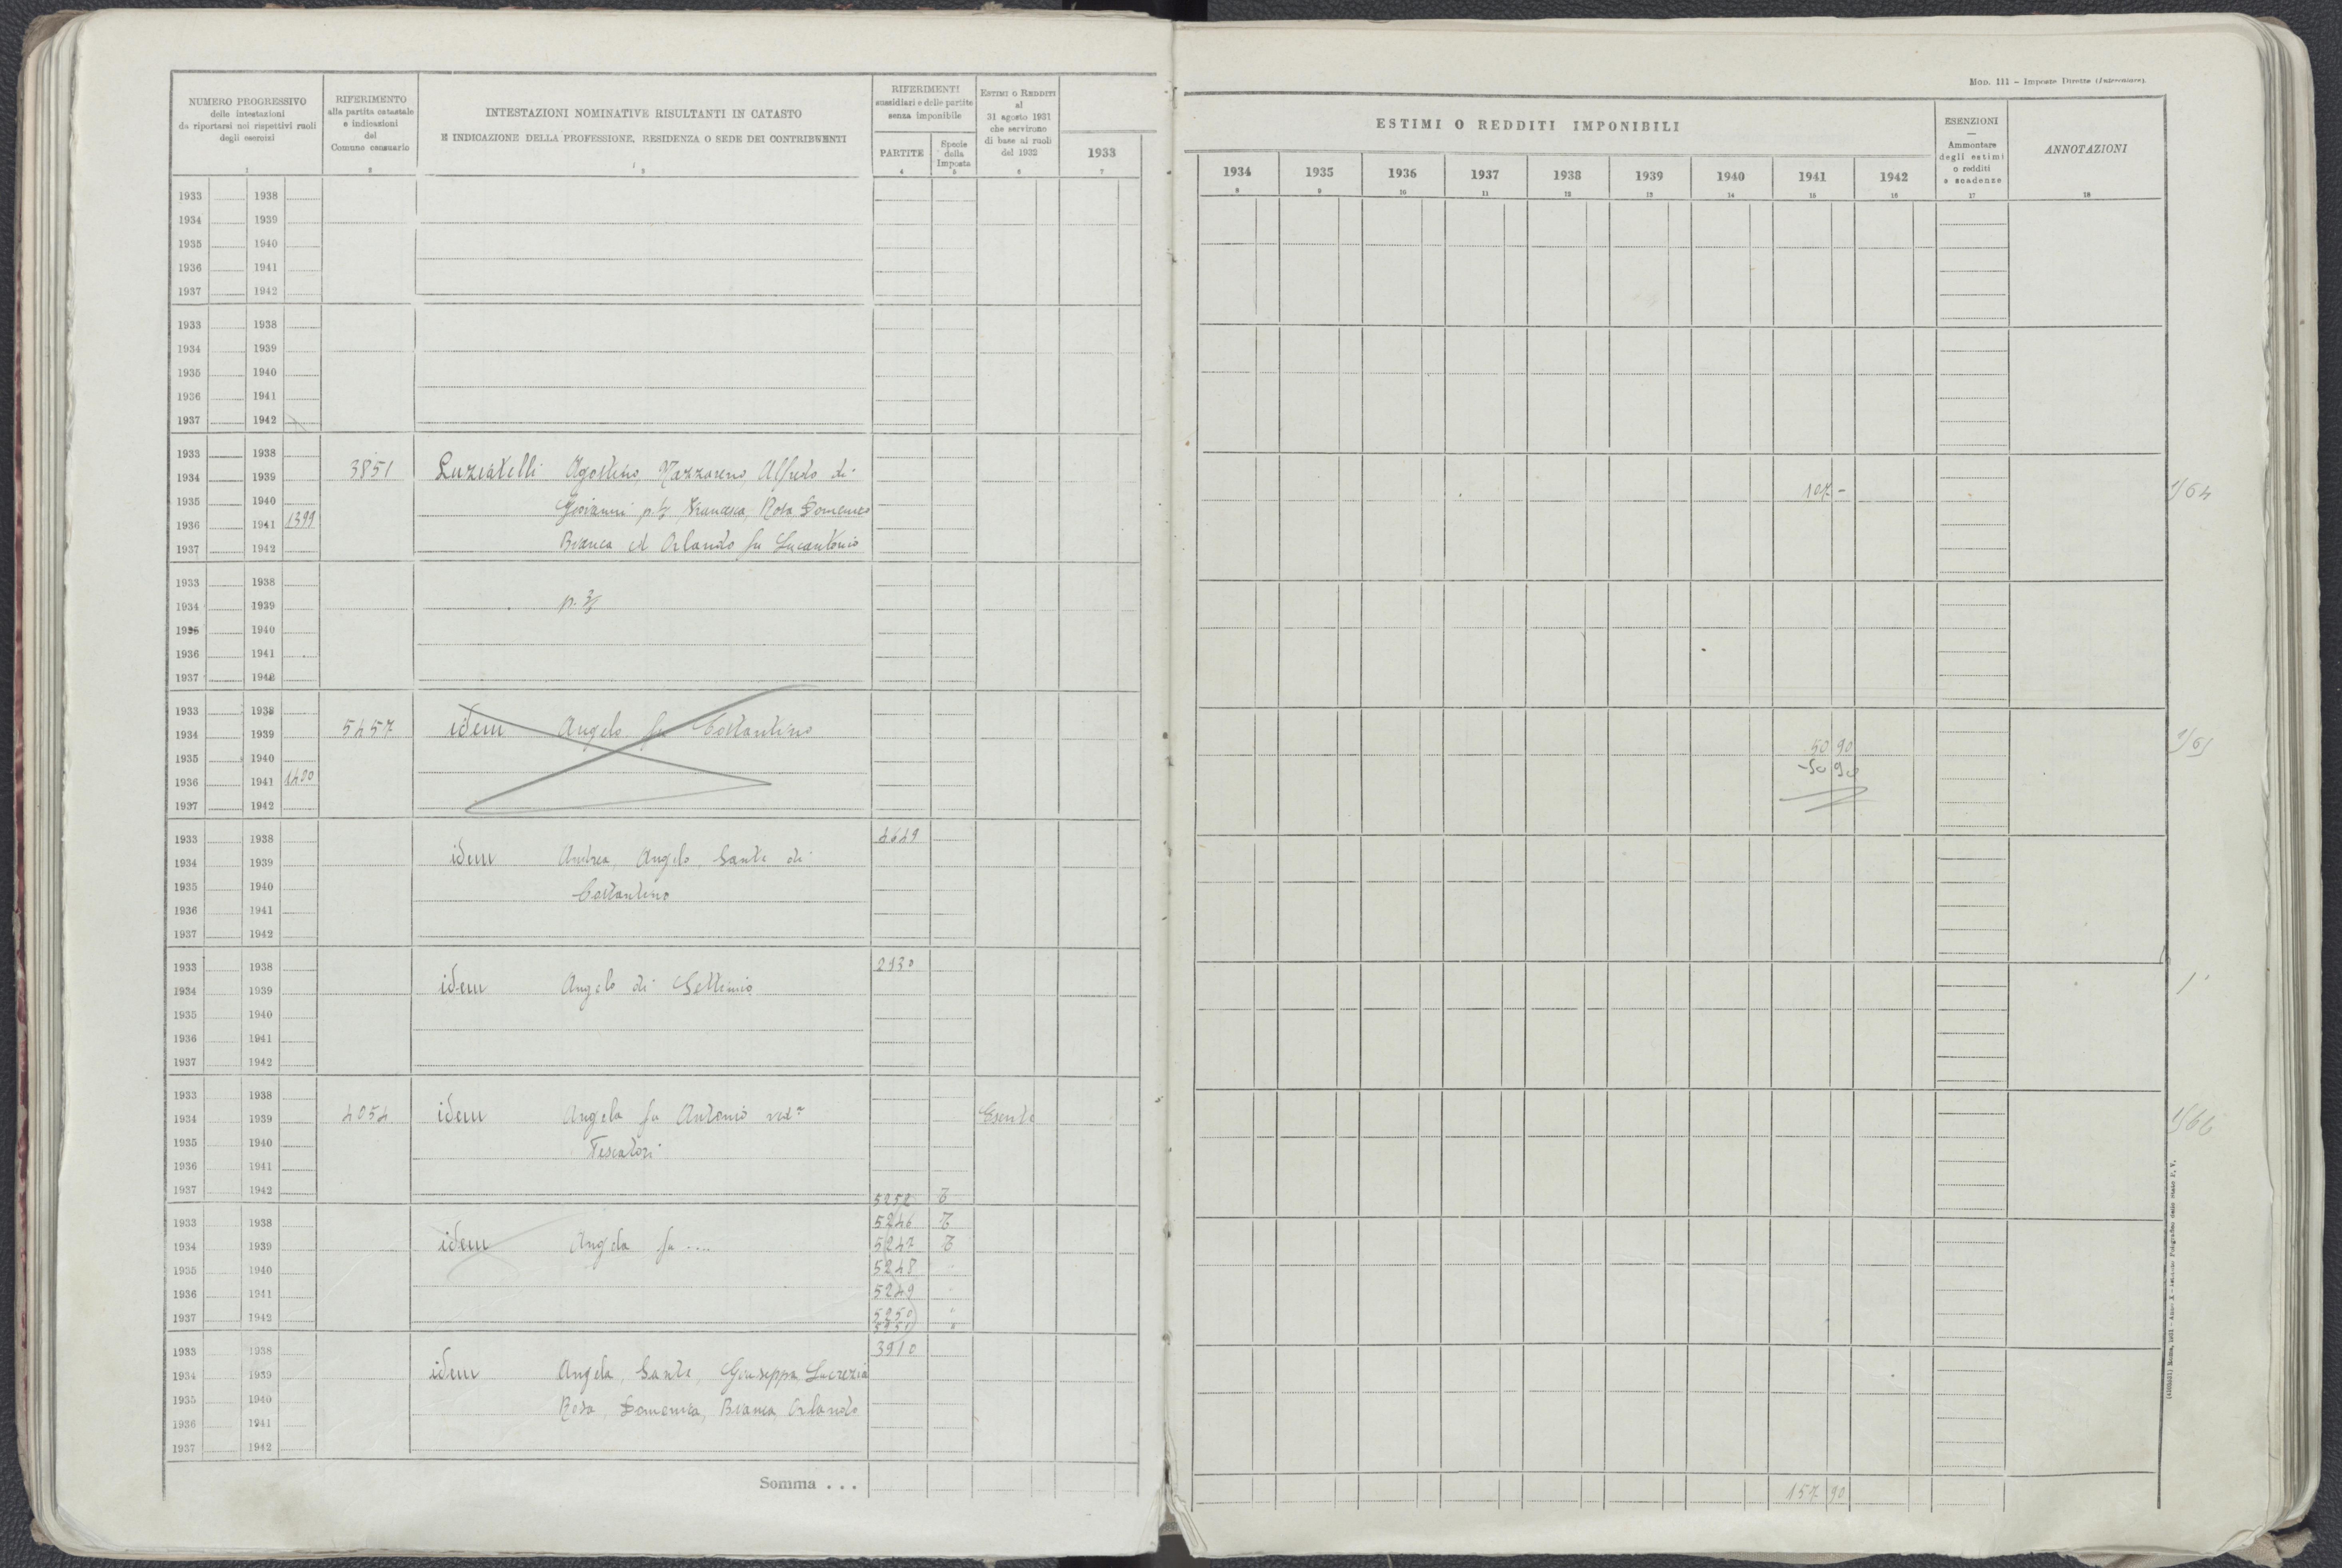 NUMERO PROGRESSIVO
delle intestazioni
da riportarsi nei rispettivi ruoli
degli esercizi
1
RIFERIMENTO
alla partita catastale
e indicazioni
del
Comune censuario
2
INTESTAZIONI NOMINATIVE RISULTANTI IN CATASTO
E INDICAZIONE DELLA PROFESSIONE, RESIDENZA O SEDE DEI CONTRIBUENTI
3
RIFERIMENTI
sussidiari e delle partite
senza imponibile
PARTITE
4
Specie
della
Imposta
5
ESTIMI O REDDITI
al
31 agosto 1931
che servirono
di base ai ruoli
del 1932
6
1933
7
1933 1938
1934 1939
1935 1940
1936 1941
1937 1942
1933 1938
1934 1939
1935 1940
1936 1941
1937 1942
1933 1938
1934 1939 3851 Luziatelli Agostino, Nazzareno, Alfredo di
1935 1940 Giovanni p. 1/3 Francesca, Rosa Domenica
1936 1941 1399
1937 1942 Bianca ed Orlando fu Lucantonio
1933 1938
1934 1939 p. 2/3
1935 1940
1936 1941
1937 1942
1933 1938
1934 1939 5457 idem Angelo fu Costantino
1935 1940
1936 1941 1400
1937 1942
1933 1938 4649
1934 1939 idem Andrea, Angelo, Sante di
1935 1940 Costantino
1936 1941
1937 1942
1933 1938 2930
1934 1939 idem Angelo di Settimio
1935 1940
1936 1941
1937 1942
1933 1938
1934 1939 4054 idem Angela fu Antonio ved.a Esente
1935 1940 Pescatori
1936 1941
1937 1942 5252 T
1933 1938 5246 T
1934 1939 idem Angela fu .... 5247 T
1935 1940 5248 "
1936 1941 5249 "
1937 1942 5250 "
5251 "
1933 1938 3910
1934 1939 idem Angela, Sante, Giuseppa, Lucrezia
1935 1940 Rosa, Domenica, Bianca, Orlando
1936 1941
1937 1942
Somma . . .
Mod. 111 - Imposte Dirette (Intercalare).
ESTIMI O REDDITI IMPONIBILI
1934 1935 1936 1937 1938 1939 1940 1941 1942
8 9 10 11 12 13 14 15 16
ESENZIONI
—
Ammontare
degli estimi
o redditi
e scadenze
17
ANNOTAZIONI
18
107 - 1/64
50 90 1/65
-50 90
1
1/66
157 90